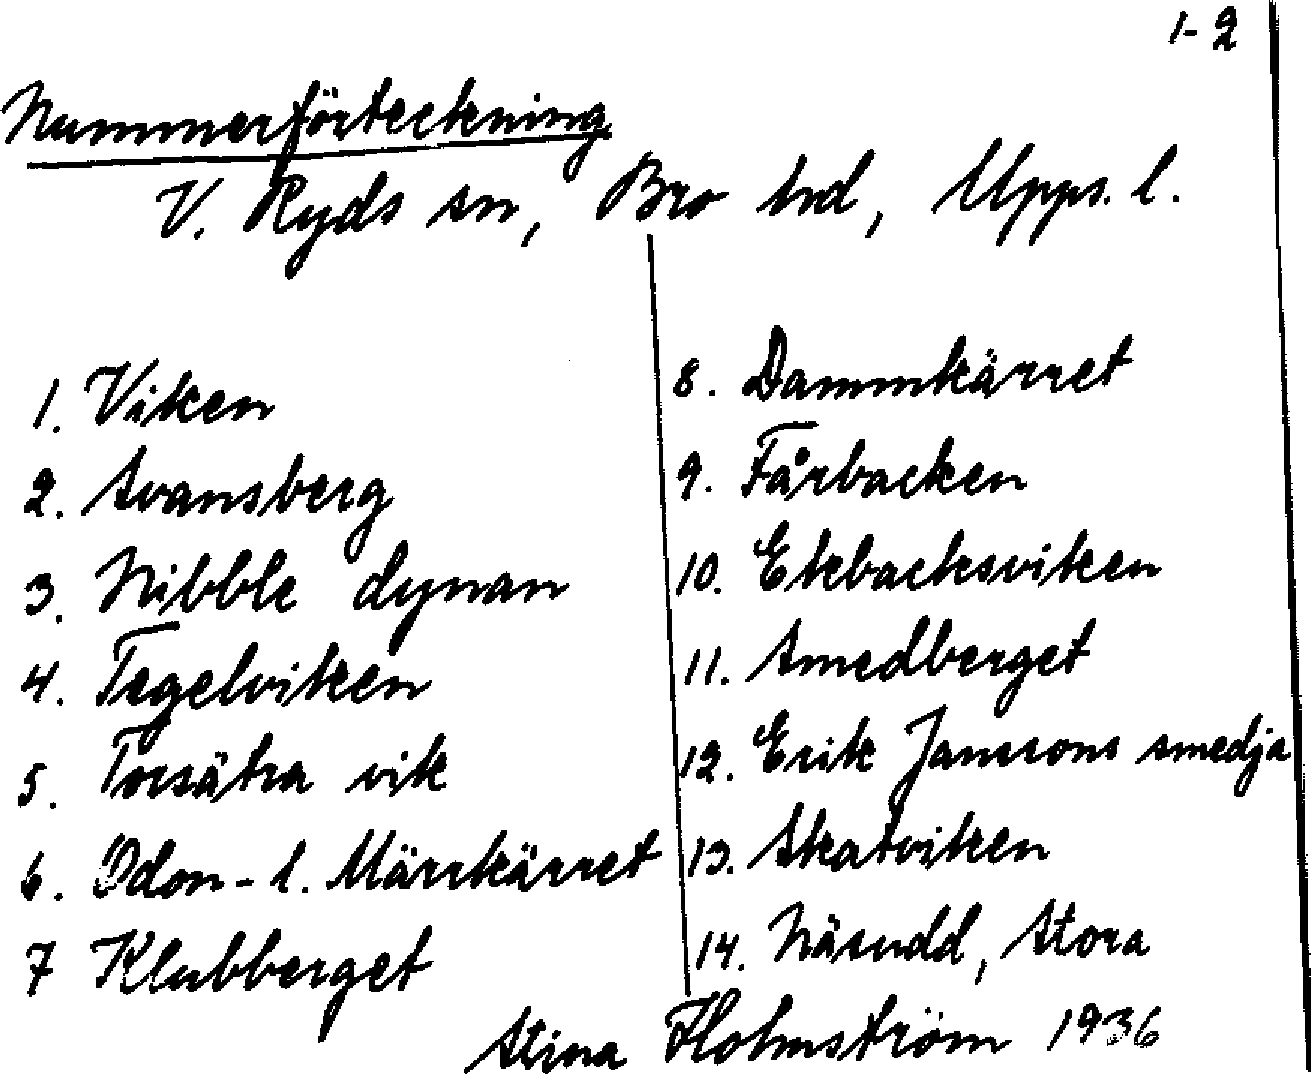 1-2
Nummerförteckning
V. Ryds sn, Bro hd, Upps. l.
1. Viken
2. Svansberg
3. Nibble dynan
4. Tegelviken
5. Torsätra vik
6. Odon- l. Märrkärret
7 Klubberget
8. Dammkärret
9. Fårbacken
10. Ekbacksviken
11. Smedberget
12. Erik Janssons smedja
13. Skatviken
14. Näsudd, Stora
Stina Holmström 1936